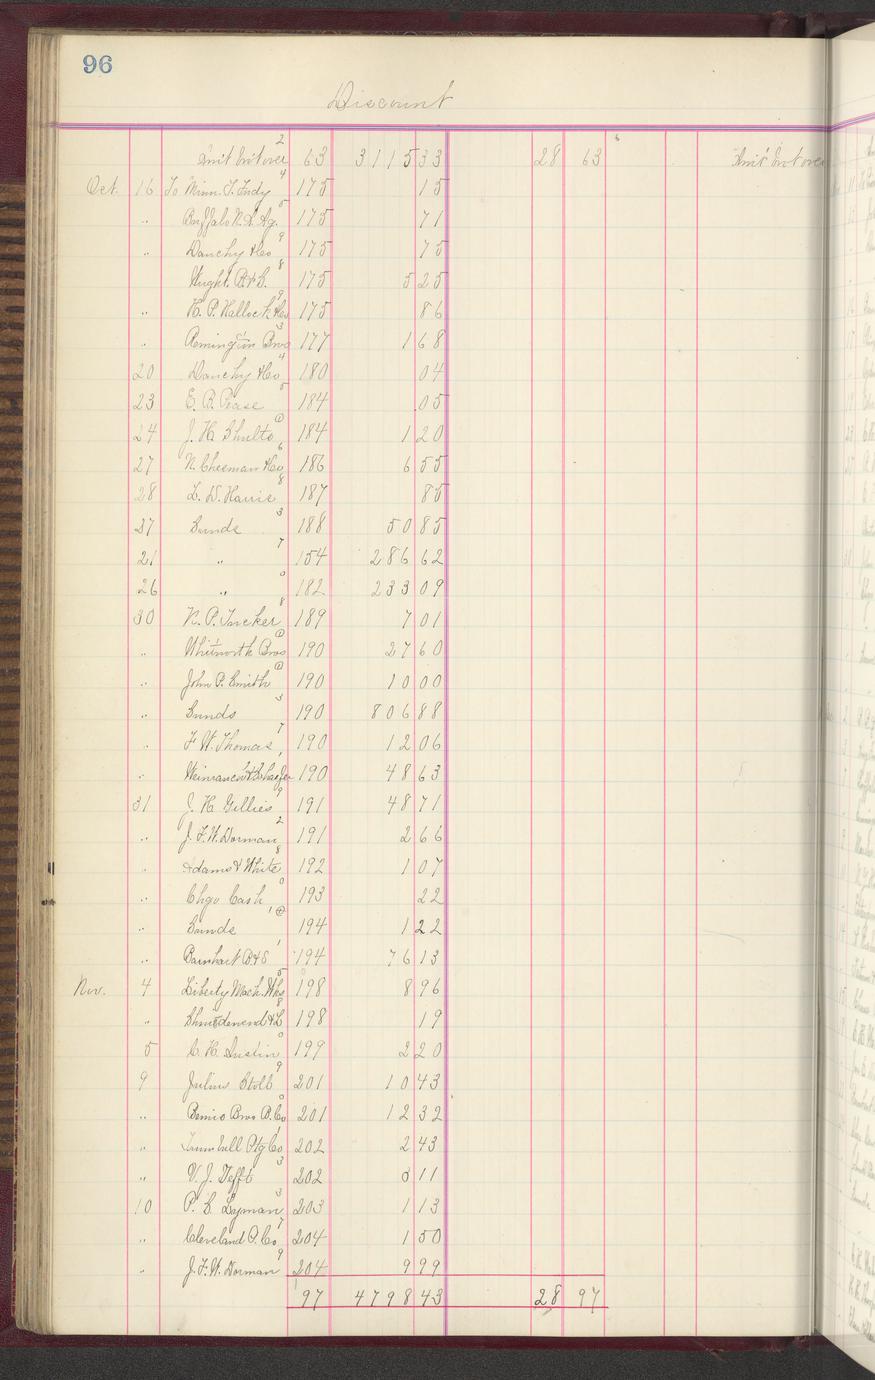 96
Discount
Amt brot over 2 63 3115 33 28 63 Amt brot over
Oct. 16 To Minn. T. Fndy 4 175 15
" Buffalo N. & Ag. 5 175 71
" Dauchy & Co 9 175 75
Wright. P. & S. 8 175 5 25
" H. P. Hallock & Co 9 175 86
" Remington Bros 3 177 1 68
20 Dauchy & Co 4 180 04
23 E. B. Pease 5 184 .05
24 J. H. Shults 184 1 20
27 N. Cheeman & Co 6 186 6 55
28 L. D. Harris 8 187 85
27 Sunds 3 188 50 85
21 " 7 154 286 62
26 " 0 182 233 09
30 N. P. Tucker 8 189 7 01
" Whitworth Bros 190 27 60
" John P. Smith 190 10 00
" Sunds 3 190 806 88
" F. W. Thomas 7 190 12 06
" 190 48 63
31 J. H. Gillies 9 191 48 71
" J. F. W. Dorman 2 191 2 66
" Adams & White 8 192 1 07
" Chgo Cash 0 193 22
" Sunds 194 1 22
" Barnhart B & S 1 194 76 13
Nov. 4 Liberty Mach. Wks 5 198 8 96
" 198 19
5 C. H. Austin 0 199 2 20
9 Julius Stoll 9 201 10 43
" Bemis Bros B. Co 0 201 12 32
" Trumbull Ptg Co 202 2 43
" V. J. Tefft 3 202 5 11
10 P. S. Lyman 3 203 1 13
" Cleveland P. Co 7 204 1 50
" J. F. W. Dorman 9 204 9 99
97 4798 43 28 97